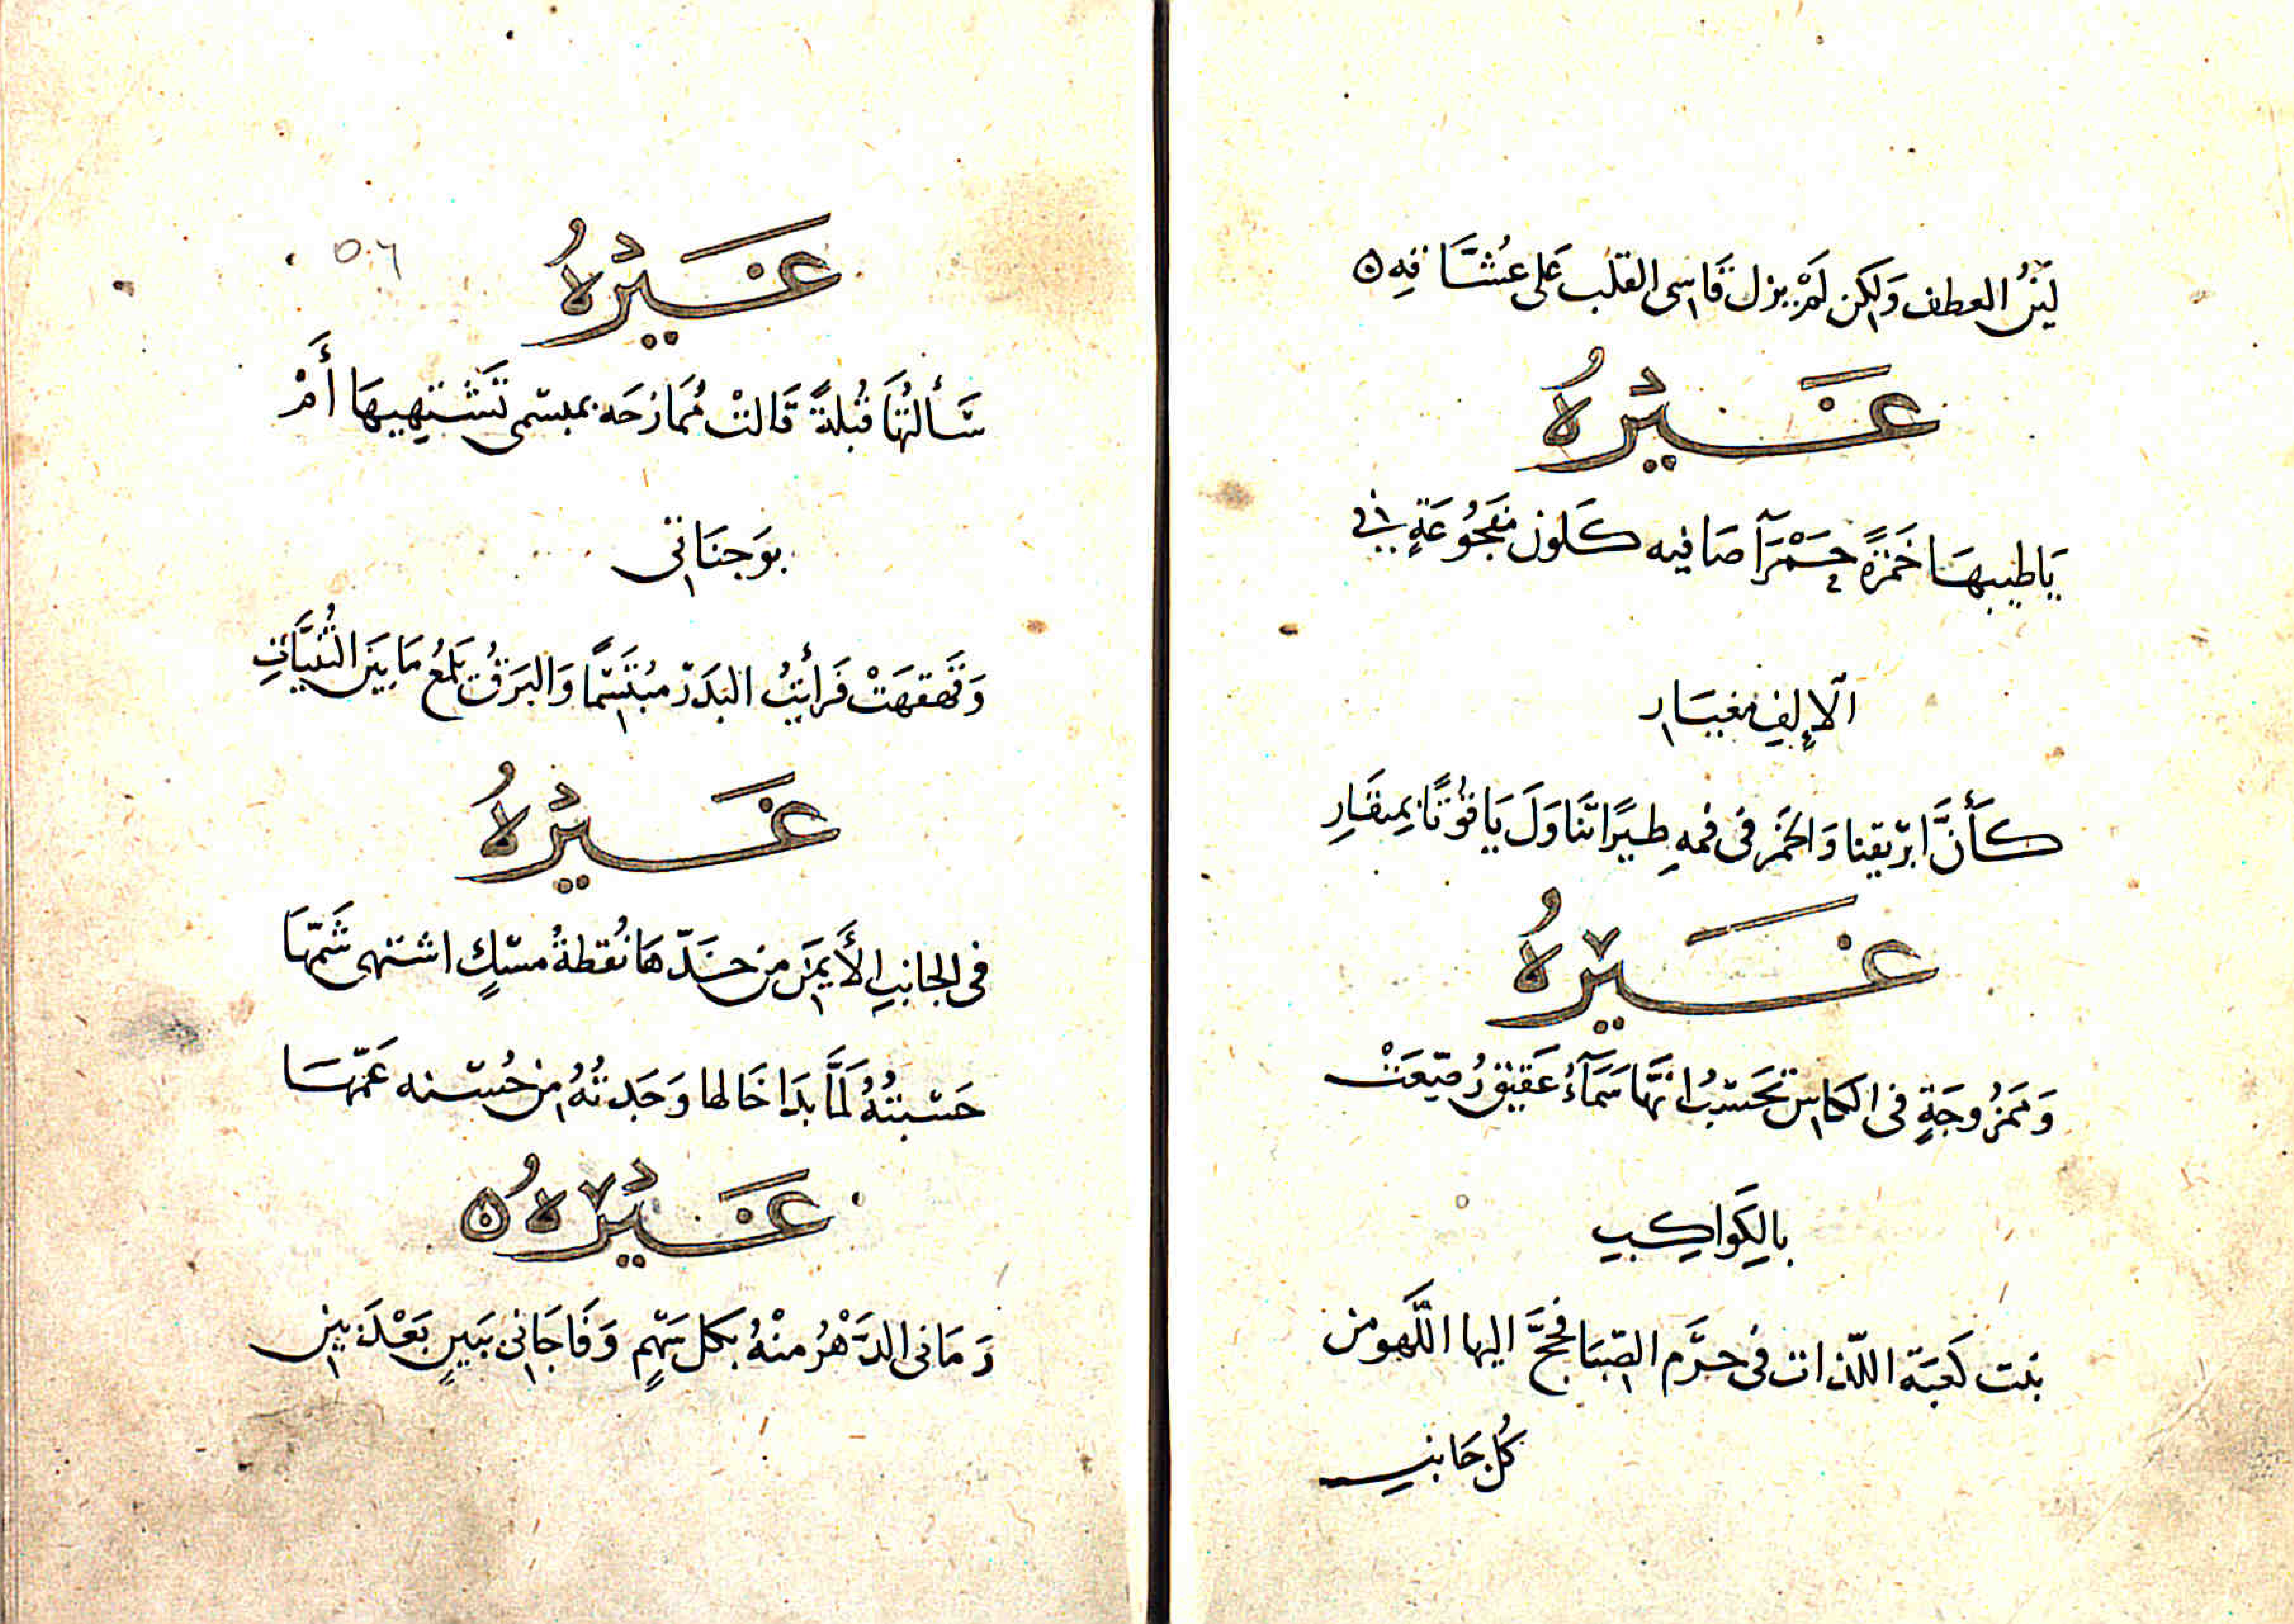 لَيِّنُ العطف وَلكن لَمْ يزل قَاسى القلب عَلى عُشَّاقِهِ ه
غَيْرُهُ
يَاطيبهَا خَمْرَةً حَمْرَآ صَافيه كَلون مَفجُوعَةٍ فى
الإلفِ بغيَار
كَأَنَّ ابرْيقنا وَالخَمر فى فمهِ طيرًا تَنَاوَلَ يَاقُوتًا بِمنقَارِ
غَيْرُهُ
وَممَزُوجَةٍ فى الكاس تَحَسْبُ انهَّا سَمَآءُ عَقيقٍ رُصّعَتْ
بالكَواكِبِ
بنت كَعبَة اللّذات فى حَرَم الصّبَا فحجَّ اليها اللَّهو من
كُل جَانبِ
غَيْرُهُ
٥٠٦
سَأَلتُهَا قُبْلةً قَالتْ مُمَازحَه بمبسَمى تَشْتَهِيهَا أَمْ
بوَجنَاتى
وَقَهقهَتْ فَرأيتُ البَدَر مُبْتَسَمًا وَالبَرَقُ يَلمَعُ مَا بَينَ الثُنَيَّاتِ
غَيْرُهُ
فى الجانبِ الأَيمَن من خَدّهَا نُقطةُ مسْكٍ اشتهى شَمّهَا
حَسْبتُهُ لَمَّا بَدَا خَالها وَجَدتُهُ من حُسْنه عَمّهَا
غَيْرُهُ ه
رَمَانى الدَّهْرُ منْهُ بكل سَهْمٍ وَفَاجَانى ببَينٍ بَعْدَ بين